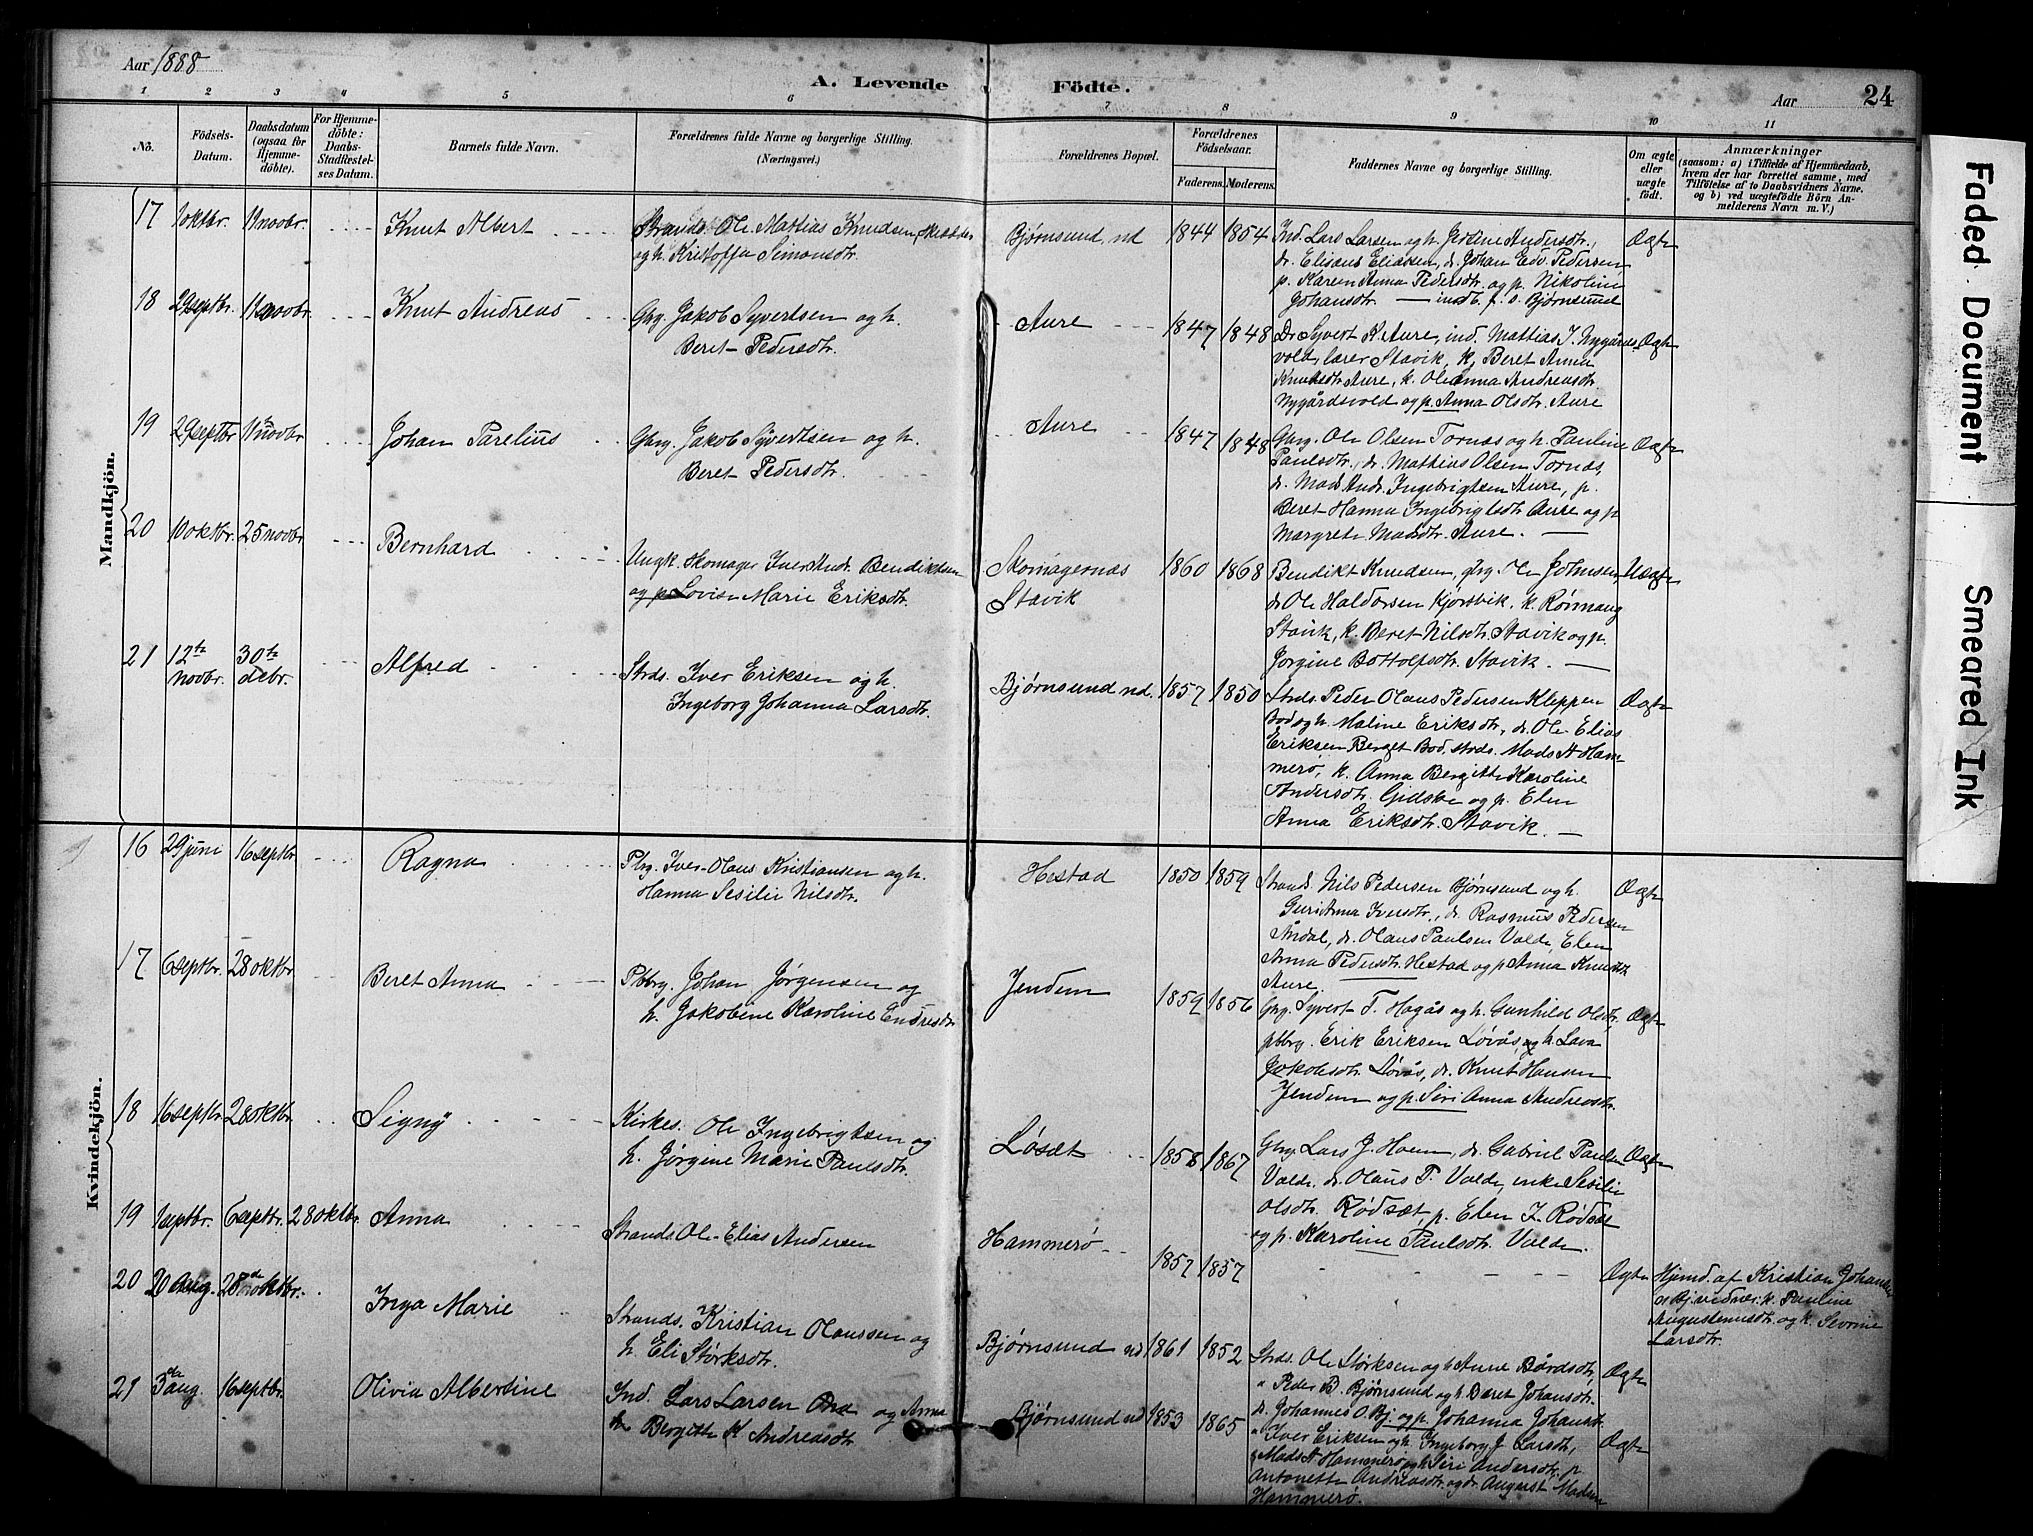 Aar 1888
A. Levende Födte.
Aar 24
1 2 3 4 5 6 7 8 9 10 11
No.
Födsels-Datum.
Daabsdatum (ogsaa for Hjemme-döbte).
For Hjemme-döbte: Daabs-Stadfæstel-ses Datum.
Barnets fulde Navn.
Forældrenes fulde Navne og borgerlige Stilling.
(Næringsvei.)
Forældrenes Bopæl.
Forældrenes Födselsaar.
Faderens. Moderens.
Faddernes Navne og borgerlige Stilling.
Om ægte eller uægte født.
Anmærkninger
(saasom: a) i Tilfælde af Hjemmedaab,
hvem der har forrettet samme, med
Tilföielse af to Daabsvidners Navne.
og b) ved uægtefödte Börn An-
melderens Navn m. V.)
Mandkjön.
17 1 oktbr. 11 novbr. Knut Albert
Strands. Ole Mattias Knudsen,
og h. Kristoffa Simonsdtr.
Bjørnsund nd 1844 1854
Ind. Lars Larsen og h. Andersdtr.,
dr. Elisæus Eliassen, dr. Johan Edv. Pedersen,
p. Karen Anna Pedersdtr. og p. Nikoline
Johansdtr. — Bjørnsund
Ægte
18 29 septbr. 11 novbr. Knut Andreas
Gbrg. Jakob Syvertsen og h.
Beret Pedersdtr.
Aure 1847 1848
Dr. Syvert K. Aure, ind. Mattias J. Nygårds-
vold, lærer Stavik, k. Beret Anna
Knutsdtr. Aure, k. Olianna Andreasdtr.
Nygårdsvold og p. Anna Olsdtr. Aure
Ægte
19 29 septbr. 11 novbr. Johan Parelius
Gbrg. Jakob Syvertsen og h.
Beret Pedersdtr.
Aure 1847 1848
Gbrg. Ole Olsen Tornes og h. Pauline
Paulsdtr., dr. Mattias Olsen Tornes,
dr. Mads Andr. Ingebrigtsen Aure, p.
Beret Hanna Ingebrigtsdtr. Aure og p.
Margrete Madsdtr. Aure. —
Ægte
20 10 oktbr. 25 novbr. Bernhard
Ungk. Skomager Iver Andr. Bendiktsen
og p. Lovise Marie Eriksdtr.
Skomagernæs
Stavik 1860 1868
Bendikt Knudsen, gbrg. Ole Johnsen,
dr. Ole Haldorsen Kjørsvik, k. Rønnaug
Stavik, k. Beret Nilsdtr. Stavik og p.
Jørgine Bottolfsdtr. Stavik. —
Uægte
21 12te novbr. 30te debr. Alfred
Strds. Iver Eriksen og h.
Ingeborg Johanna Larsdtr.
Bjørnsund nd. 1857 1850
Strds. Peder Olaus Pedersen Kleppen
Bod og h. Maline Eriksdtr., dr. Ole Elias
Eriksen Berget Bod, strds. Mads A Ham-
merø, k. Anna Bergitte Karoline
Andersdtr. Gidske og p. Elen
Anna Eriksdtr. Stavik. —
Ægte
Kvindekjön.
16 29 juni 16 septbr. Ragna
Iver Olaus Kristiansen og h.
Hanna Sesilie Nilsdtr.
Hestad 1850 1859
Strands. Nils Pedersen Bjørnsund og h.
Guri Anna Iversdtr., dr. Rasmus Pedersen
Årdal, dr. Olaus Paulsen Valde, Elen
Anna Pedersdtr. Hestad og p. Anna Knutsdtr.
Aure.
Ægte
17 6 septbr. 28 oktbr. Beret Anna
Pbbrg. Johan Jørgensen og
h. Jakobine Karoline Endresdtr.
Jendem 1859 1856
Gbrg. Syvert T. Hagås og h. Gunhild Olsdtr.,
pbbrg. Erik Eriksen Løvås, og h. Lava
Jakobsdtr. Løvås, dr. Knut Hansen
Jendem og p. Siri Anna Andreasdtr.
Ægte
18 16 septbr. 28 oktbr. Signy
Kirkes. Ole Ingebrigtsen og
h. Jørgine Marie Paulsdtr.
Løset 1858 1867
Gbrg. Lars J. Hoem, dr. Gabriel Paulsen
Valde, dr. Olaus P. Valde, enke Sesilie
Olsdtr. Rødsæt, p. Elen I. Rødsæt
og p. Karoline Paulsdtr. Valde.
Ægte
19 1 septbr. 6 septbr. 28 oktbr. Anna
Strands. Ole Elias Andersen
Hammerø 1857 1857
Ægte
Hjemd. af Kristian Johansen
Bj. vidner: k. Pauline
Augustinusdtr. og k. Sevrine
Larsdtr.
20 20 aug. 28de oktbr. Inga Marie
Strands. Kristian Olaussen og
h. Eli Størksdtr.
Bjørnsund nd 1861 1852
Strds. Ole Størksen og h. Aune Bårdsdtr.,
" Peder B. Bjørnsund og h. Beret Johansdtr.
dr. Johannes O. Bj. og p. Johanna Johansdtr.
Ægte
21 3die aug. 16 septbr. Olivia Albertine
Ind. Lars Larsen og Anna
Bergitte K Andreasdtr.
Bjørnsund nd 1853 1865
" Iver Eriksen og h. Ingeborg J. Larsdtr.,
Mads A Hammerø og h. Siri Andersdtr. p.
Antonette Andreasdtr. og dr. August Madsen
Hammerø.
Ægte
Faded Document
Smeared Ink